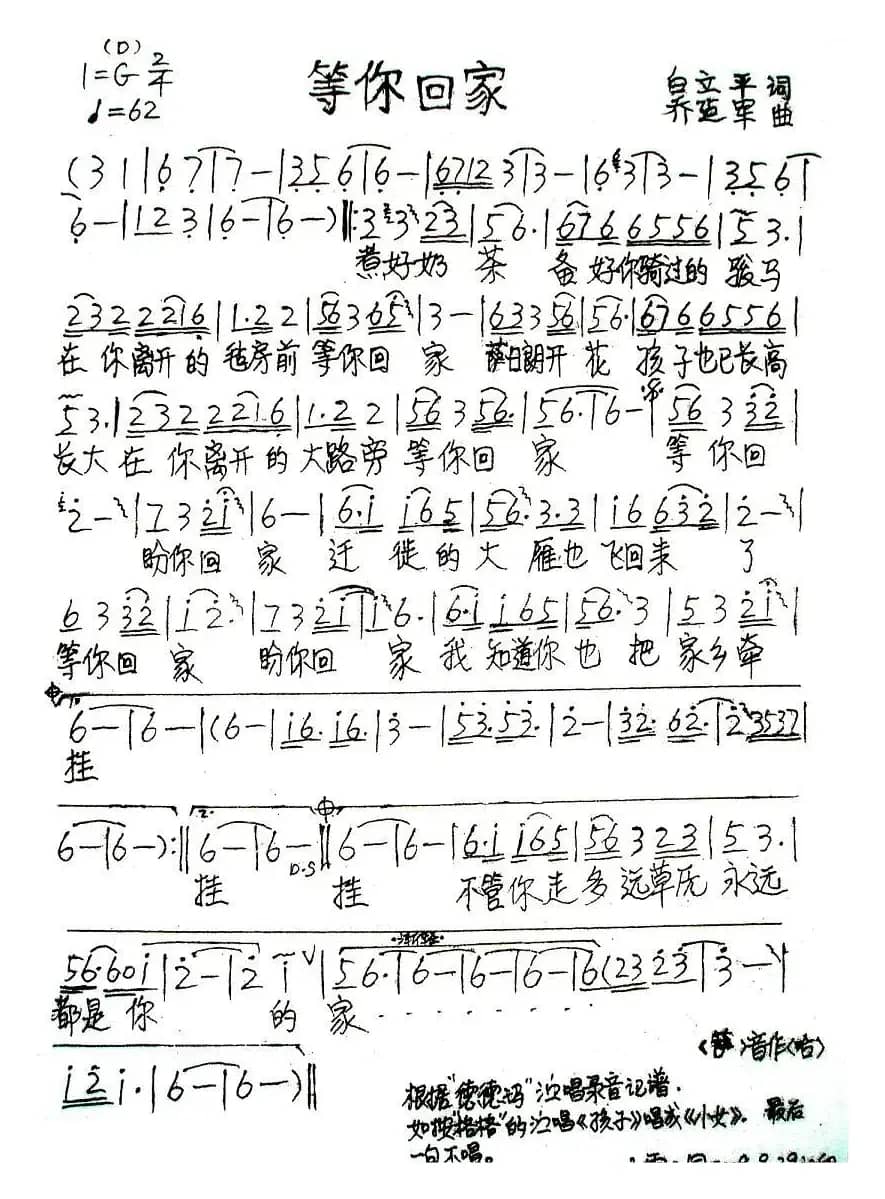 (D)
1=G 2/4
♩=62
等你回家
白立平 词
乔建军 曲
(3 1|6 7|7 —|3 5 6|6 —|6712 3|3 —|6 3|3 —|3 5 6|
6 —|1 2 3|6 —|6 —)‖:3 3 23|5 6.|676 6556|5 3.|
煮好奶 茶 备 好你骑过的 骏马
232 2216|1.2 2|56 3 65|3 —|633 56|56.|6766 6556|
在 你离开的 毡房前 等你回 家 萨日朗开 花 孩子也已长高
5 3.|232 2 221.6|1.2 2|56 3 56.|56.|6 —|56 3 32|
长大 在 你离开的 大路旁 等你回 家 等 你回
2 —|7 3 21|6 —|6.1 165|56. 3.3|16 632|2 —|
盼你回 家 迁 徙的 大 雁也 飞回来 了
6 3 32|1 2.|7 3 21|1 6.|6.1 165|56. 3|5 3 21|
等你回 家 盼你回 家 我 知道你 也 把 家乡牵
6 —|6 —|(6 —|16. 16.|3 —|53. 53.|2 —|32. 62.|2 3532|
挂
6 —|6 —):‖2. 6 —|6 —‖6 —|6 —|6.1 165|56 3 23|5 3.|
D.S
挂 挂 不管你走多 远草原 永远
56. 601|2 —|2 1|56.|6 —|6 —|6 —|6(23 23|3 —|
都是 你 的 家 . . . . . . .
12 1.|6 —|6 —)‖
音作(哈)
根据“德德玛”演唱录音记谱.
如按“格格”的演唱《孩子》唱成《小女》. 最后
一句不唱。